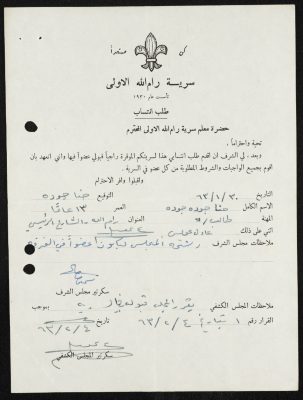 كن مستعداً
سرية رام الله الاولى
تأسست عام ١٩٣٠
طلب انتساب
حضرة معلم سرية رام الله الاولى المحترم
تحية واحتراما،
وبعد، لي الشرف ان اقدم طلب انتسابي هذا لسريتكم الموقرة راجياً قبولي عضواً فيها واني اتعهد بان
اقوم بجميع الواجبات والشروط المطلوبة من كل عضو في السرية.
واقبلوا وافر الاحترام
التاريخ ٣٠/١/٦٣ التوقيع حنا جوده
الاسم الكامل حنا جوده جوده العمر ١٣ عاماً
المهنة طالب العنوان رام الله الشارع الرئيسي
اثنى على ذلك
ملاحظات مجلس الشرف
سكرتير مجلس الشرف
ملاحظات المجلس الكشفي يقرر المجلس بموجب
القرار رقم ١ بتاريخ ٤/٢/٦٣ تاريخ ٤/٢/٦٣
سكرتير المجلس الكشفي